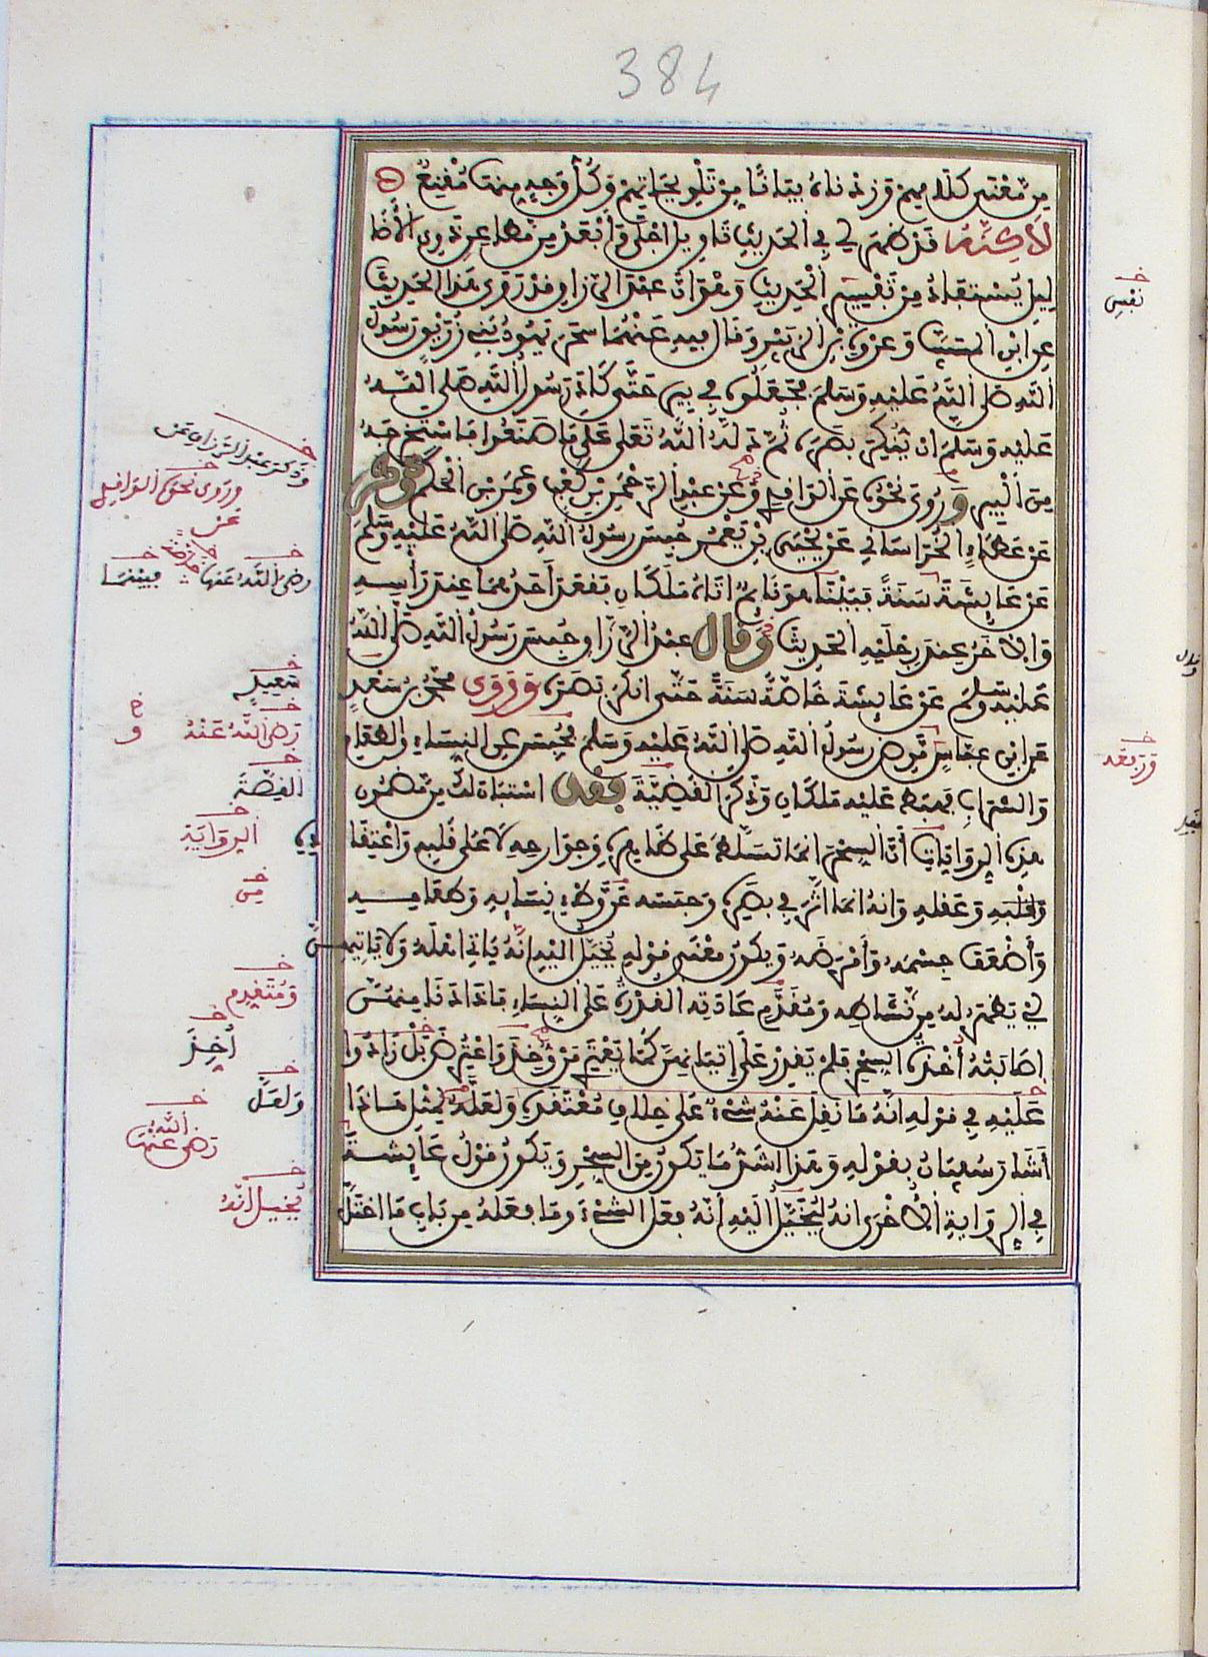 384
مِن مَّعْنَى كلامهم وزدناه بيانًا مِن تلويحاتهم وكلُّ وجهٍ منها مُقْنِعٌ
لاكنَّهُ قد ظهر لي في الحديث تاويل اجلى وابعد من مطاعن ذوي الأضا
ليل يُستفاد من نفس الحديث وهو ان عبد الرزاق قد روى هذا الحديث
عن ابن المسيب وعروة بن الزبير وقال فيه عنهما سحر يهود بني زريق رسول
الله صلى الله عليه وسلم فجعلوه في بير حتى كاد رسول الله صلى الله
عليه وسلم ان ينكر بصره ثم دله الله تعلى على ما صنعوا فاستخرجه
من البير وروي نحوه عن الواقدي وعن عبد الرحمن بن كعب وعمر بن الحكم وذكر
عن عطاء الخراساني عن يحيى بن يعمر حبس رسول الله صلى الله عليه وسلم
عن عايشة سنة فبينا هو نايم اتاه ملكان فقعد احدهما عند راسه
والاخر عند رجليه الحديث وقال عبد الرزاق حبس رسول الله صلى الله
عليه وسلم عن عايشة خاصة سنة حتى انكر بصره وروى محمد بن سعد
عن ابن عباس مرض رسول الله صلى الله عليه وسلم فحبس عن النساء والطعام
والشراب فهبط عليه ملكان وذكر القضية فقد استبان لك من مضمون
هذه الروايات أن السحر انما تسلط على ظاهره وجوارحه لا على قلبه واعتقا
دِه
وعقله وانه انما اثر في بصره وحبسه عن وطء نسايه وطعامه
وأضعف جسمه وأمرضه ويكون معنى قوله يخيل اليه انه ياتي اهله ولا ياتيهن
اي يظهر له من نشاطه ومُقَدَّم عادته القدرة على النساء فاذا دنا منهن
اصابته أخذة السحر فلم يقدر على اتيانهن كما يعتري من أخذ واعترض
عليه في قوله انه ما نقل عنه شيء على خلاف معتقده ولعله لمثل هاذا
أشار سفيان بقوله وهذا اشد ما يكون من السحر ويكون قول عايشة
في الرواية الأخرى انه ليخيل اليه أنه فعل الشيء وما فعله من باب ما اختل
خـ نفس
خـ وذكر عبد الرزاق عن
خـ وروى نحوه الواقدي
عن
خـ رضي الله عنها
خـ فبينما
خـ سعيد
خـ رضي الله عنه
خـ و
خـ القصة
خـ الرواية
خـ من
خـ ومتقدم
خـ أُخِذَ
خـ ولعل
خـ رضي الله عنها
خـ يخيل انه